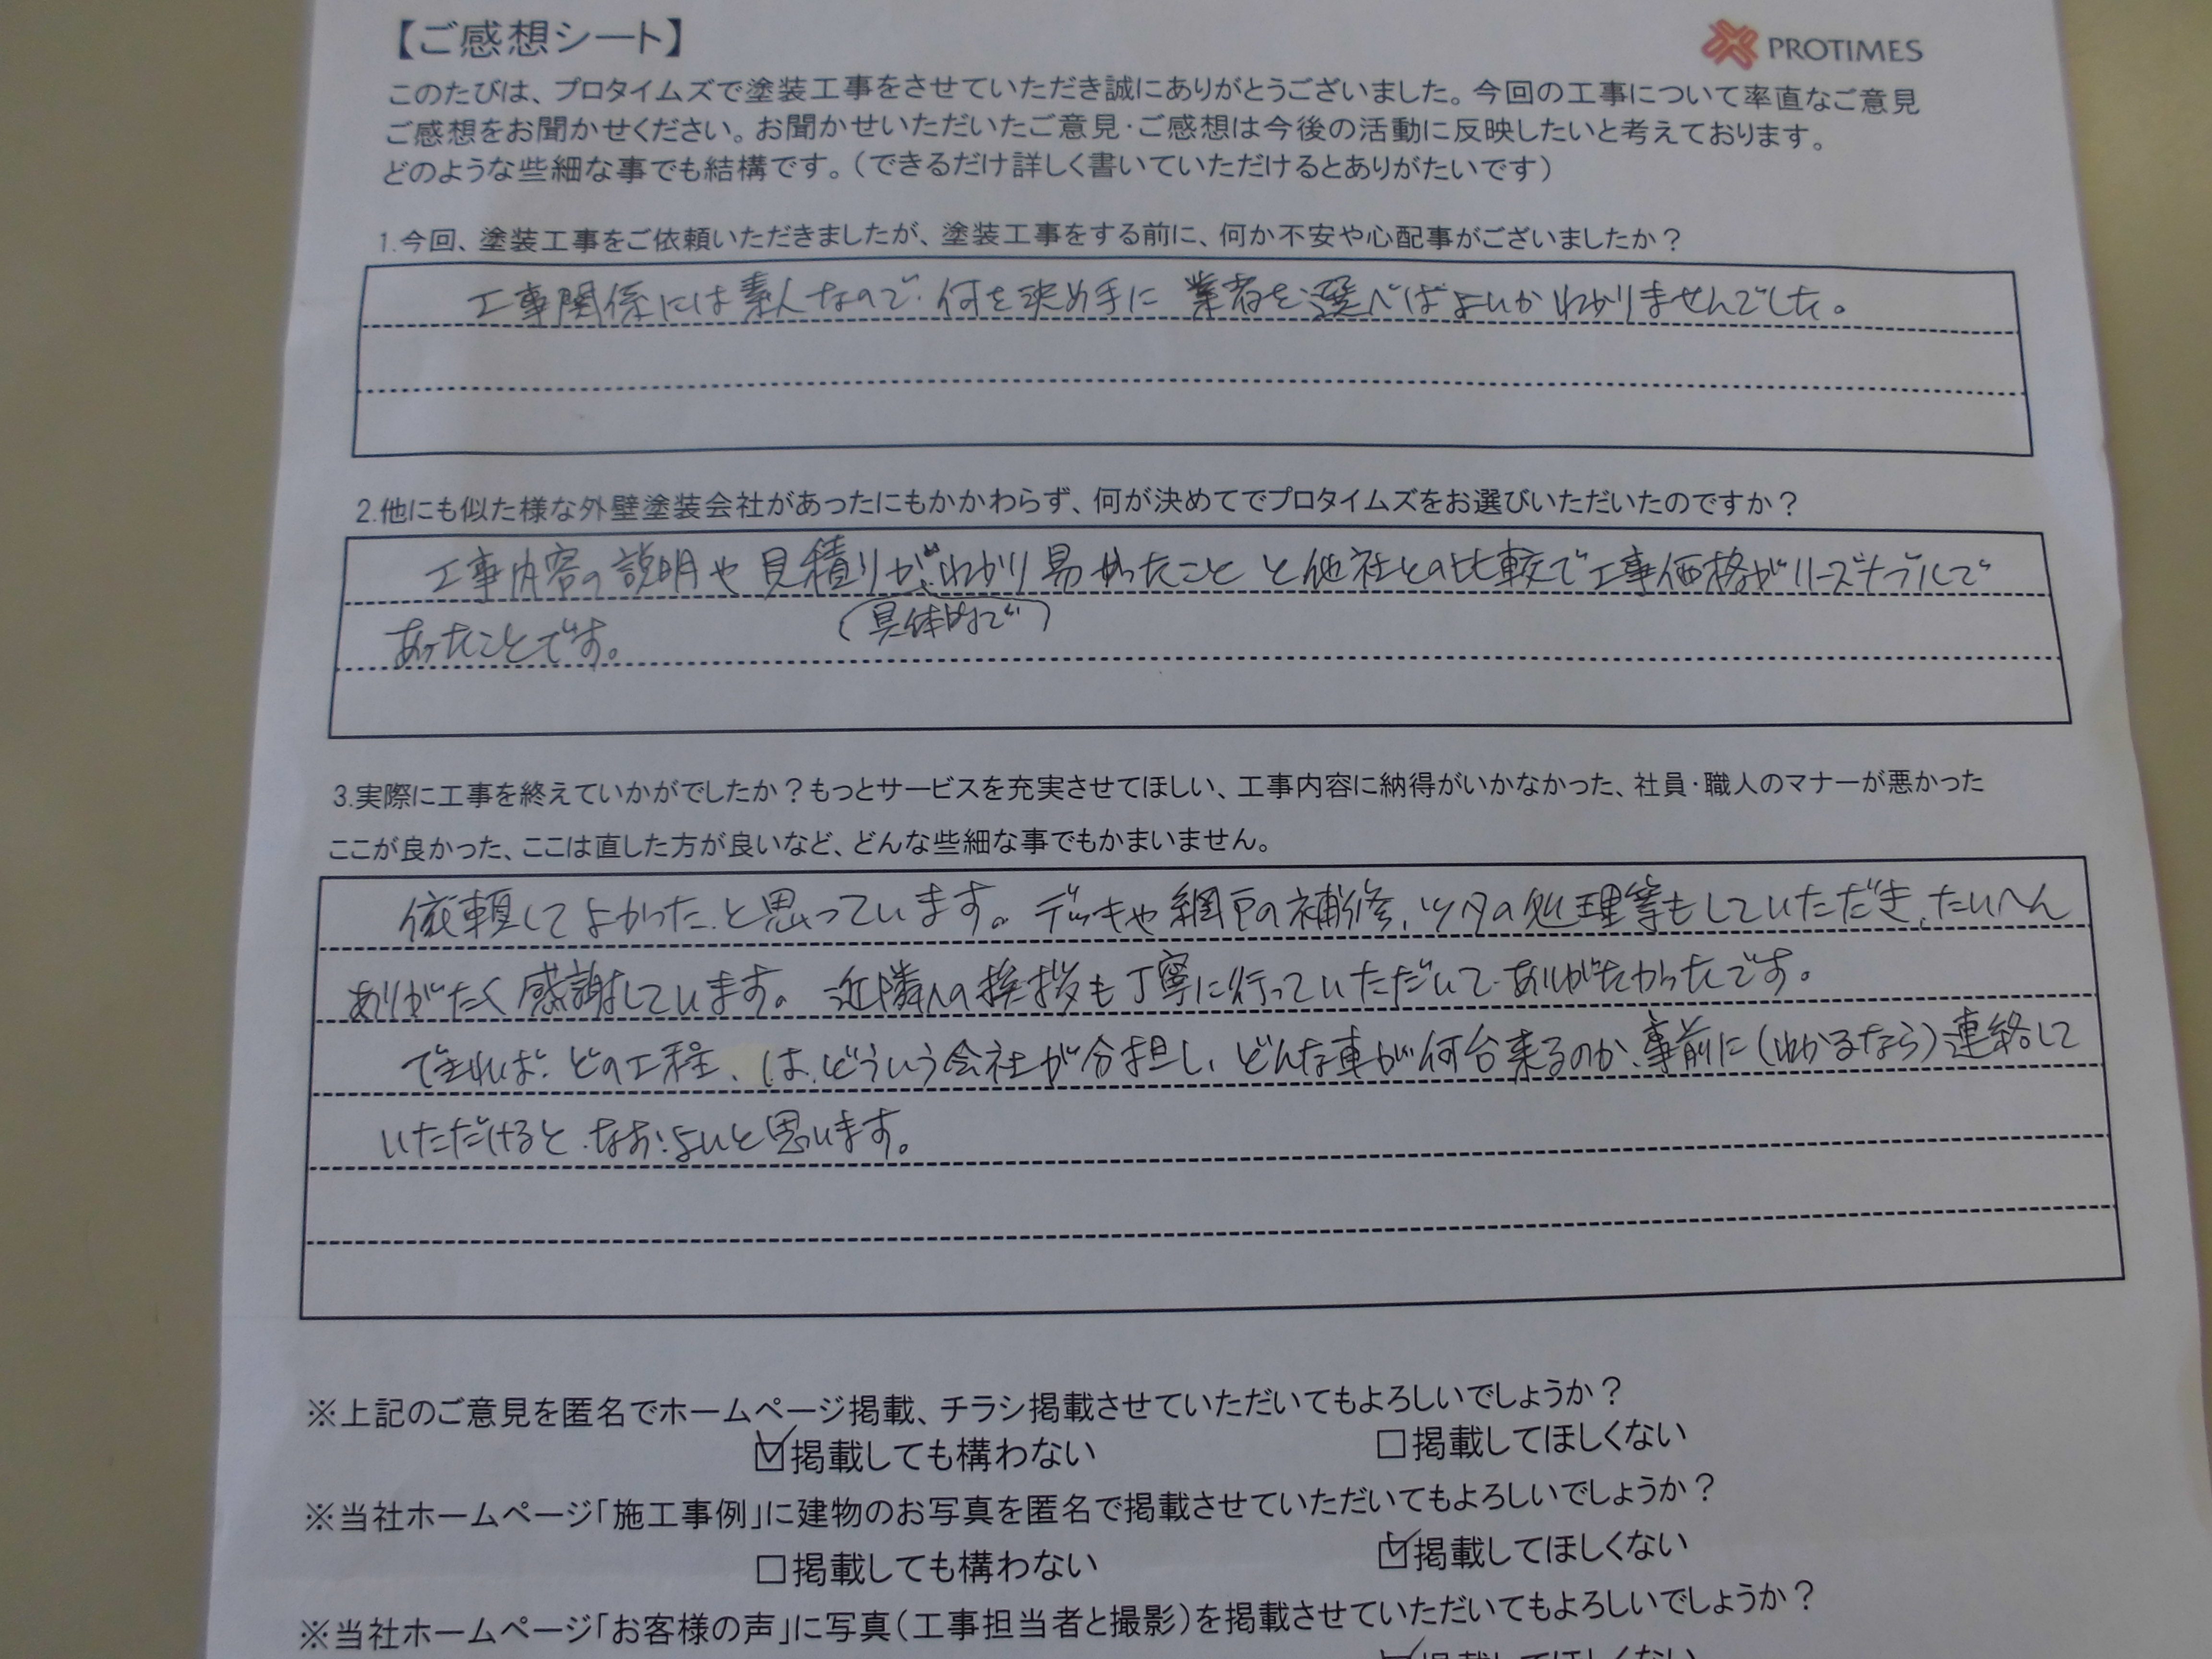 【ご感想シート】
PROTIMES
このたびは、プロタイムズで塗装工事をさせていただき誠にありがとうございました。今回の工事について率直なご意見
ご感想をお聞かせください。お聞かせいただいたご意見・ご感想は今後の活動に反映したいと考えております。
どのような些細な事でも結構です。（できるだけ詳しく書いていただけるとありがたいです）
1.今回、塗装工事をご依頼いただきましたが、塗装工事をする前に、何か不安や心配事がございましたか？
工事関係には素人なので、何を決め手に業者を選べばよいかわかりませんでした。
2.他にも似た様な外壁塗装会社があったにもかかわらず、何が決めてでプロタイムズをお選びいただいたのですか？
工事内容の説明や見積りが、わかり易かったことと他社との比較で工事価格がリーズナブルで
（具体的で）
あったことです。
3.実際に工事を終えていかがでしたか？もっとサービスを充実させてほしい、工事内容に納得がいかなかった、社員・職人のマナーが悪かった
ここが良かった、ここは直した方が良いなど、どんな些細な事でもかまいません。
依頼してよかったと思っています。デッキや網戸の補修、ツタの処理等もしていただき、たいへん
ありがたく感謝しています。近隣への挨拶も丁寧に行っていただいて、ありがたかったです。
できれば、どの工程、は、どういう会社が分担し、どんな車が何台来るのか、事前に（わかるなら）連絡して
いただけると、なお、よいと思います。
※上記のご意見を匿名でホームページ掲載、チラシ掲載させていただいてもよろしいでしょうか？
☑掲載しても構わない　□掲載してほしくない
※当社ホームページ「施工事例」に建物のお写真を匿名で掲載させていただいてもよろしいでしょうか？
□掲載しても構わない　☑掲載してほしくない
※当社ホームページ「お客様の声」に写真（工事担当者と撮影）を掲載させていただいてもよろしいでしょうか？
☑掲載してほしくない